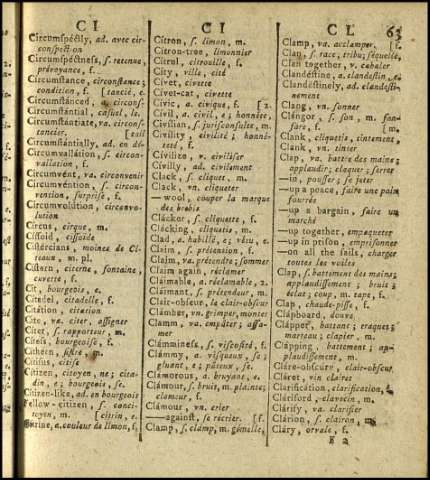 C I
Circumspéctly, ad. avec cir-
conspection
Circumspéctness, s. retenue,
prévoyance, f.
Circumstance, circonstance;
condition, f. [tancié, e.
Circumstanced, a. circons-
Circumstántial, casuel, le.
Circumstántiate, va. circons-
tancier. [tail
Circumstántially, ad. en dé-
Circumvallátion, s. circon-
vallation, f.
Circumvént, va. circonvenir
Circumvéntion, s. circon-
vention, surprise, f.
Circumvolútion, circonvo-
lution
Circus, cirque, m.
Cissoid, cissoïde
Cistércians, moines de Cî-
teaux, m. pl.
Cistern, citerne, fontaine,
cuvette, f.
Cit, bourgeois, e.
Citadel, citadelle, f.
Citation, citation
Cite, va. citer, assigner
Citer, s. rapporteur, m.
Citess, bourgeoise, f.
Cithern, sistre, m.
Citisus, citise
Citizen, citoyen, ne; cita-
din, e; bourgeois, se.
Citizen-like, ad. en bourgeois
Fellow-citizen, s. conci-
toyen, m. [citrin, e.
Citrine, a. couleur de limon, f.
C I
Citron, s. limon, m.
Citron-tree, limonnier
Citrul, citrouille, f.
City, ville, cité
Civet, civette
Civet-cat, civette
Civic, a. civique, f. [2.
Civil, a. civil, e; honnête,
Civilian, s. jurisconsulte, m.
Civílity, civilité; honnê-
teté, f.
Civilize, va. civiliser
Civilly, ad. civilement
Clack, s. cliquet, m.
Clack, vn. cliqueter
— wool, couper la marque
des brebis
Clácker, s. cliquette, f.
Clácking, cliquetis, m.
Clad, a. habillé, e; vêtu, e.
Claim, s. prétension, f.
Claim, va. prétendre; sommer
Claim again, réclamer
Cláimable, a. réclamable, 2.
Cláimant, s. prétendeur, m.
Clair-obscur, le clair-obscur
Clámber, vn. grimper, monter
Clamm, va. empâter; affa-
mer
Clámminess, s. viscosité, f.
Clámmy, a. visqueux, se;
gluant, e; pâteux, se.
Clámorous, a. bruyant, e.
Clámour, s. bruit, m. plainte;
clameur, f.
Clámour, vn. crier
—against, se récrier. [f.
Clamp, s. clamp, m. gémelle,
C L 63
Clamp, va. acclamper. [f.
Clan, s. race, tribu; séquelle,
Clan together, v. cabaler
Clandéstine, a. clandestin, e.
Clandéstinely, ad. clandesti-
nement
Clang, vn. sonner
Clángor, s. son, m. fan-
fare, f. [m.
Clank, cliquetis, tintement,
Clank, vn. tinter
Clap, va. battre des mains;
applaudir; claquer; serrer
—in, pousser; se jeter
—up a peace, faire une paix
fourrée
—up a bargain, faire un
marché
—up together, empaqueter
—up in prison, emprisonner
—on all the sails, charger
toutes les voiles
Clap, s. battiment des mains;
applaudissement; bruit;
éclat; coup, m. tape, f.
Clap, chaude-pisse, f.
Clápboard, douve
Clápper, battant; craques;
marteau; clapier, m.
Clápping, battement; ap-
plaudissement, m.
Cláre-obscure, clair-obscur
Cláret, vin clairet
Clarificátion, clarification, f.
Clariford, clavecin, m.
Clárify, va. clarifier
Clárion, s. clairon, m.
Cláry, orvale, f.
F 2